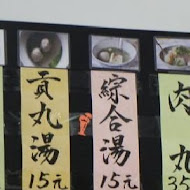 貢丸湯
15元
綜合湯
15元
肉